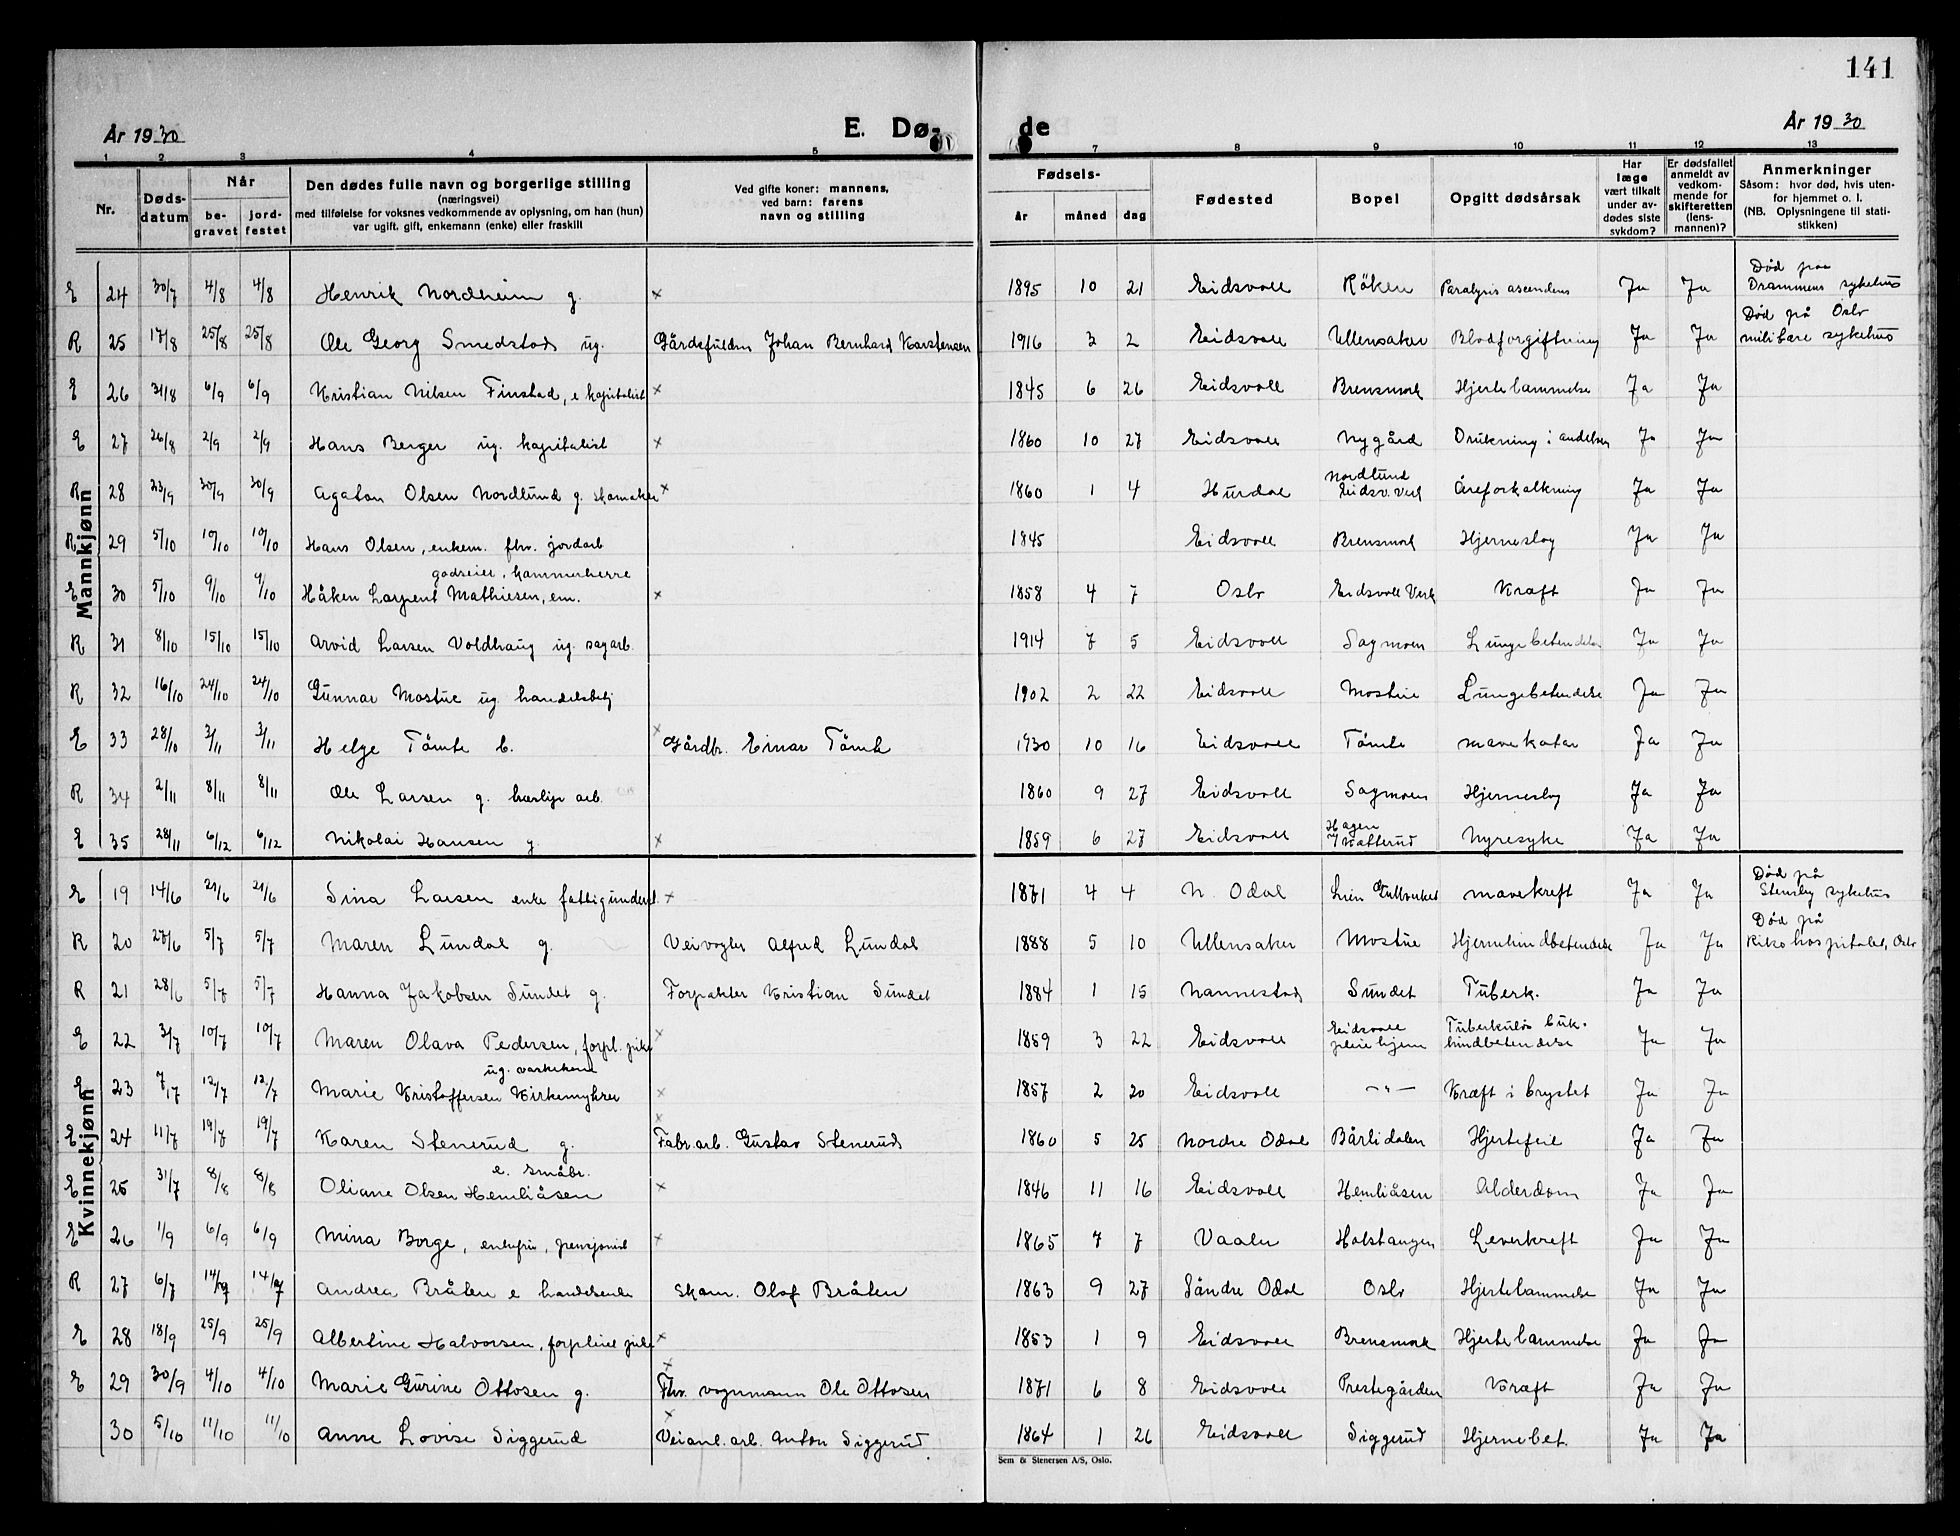 141
År 1930 E. Dø- de År 1930
1 2 3 4 5 7 8 9 10 11 12 13
Nr. Dødsdatum Når begravet jordfestet Den dødes fulle navn og borgerlige stilling (næringsvei) med tilføielse for voksnes vedkommende av oplysning, om han (hun) var ugift, gift, enkemann (enke) eller fraskill Ved gifte koner: mannens, ved barn: farens navn og stilling Fødsels- år måned dag Fødested Bopel Opgitt dødsårsak Har læge vært tilkalt under avdødes siste sykdom? Er dødsfallet anmeldt av vedkommende for skifteretten (lensmannen)? Anmerkninger Såsom: hvor død, hvis utenfor hjemmet o. l. (NB. Oplysningene til statistikken)
Mannkjønn
E 24 30/7 4/8 4/8 Henrik Nordheim g. x 1895 10 21 Eidsvoll Røken Paralysis ascendens Ja Ja Død paa Drammens sykehus
R 25 17/8 25/8 25/8 Ole Georg Smedstad ug. Johan Bernhard Karstensen 1916 3 2 Eidsvoll Ullensaker Blodforgiftning Ja Ja Død på Oslo militære sykehus
E 26 31/8 6/9 6/9 Kristian Nilsen Finstad, e kapitalist x 1845 6 26 Eidsvoll Brensmork Hjertelammelse Ja Ja
E 27 26/8 2/9 2/9 Hans Berger ug. kapitalist x 1860 10 27 Eidsvoll Nygård Drukning i andelven Ja Ja
R 28 23/9 30/9 30/9 Agaton Olsen Nordlund g. skomaker x 1860 1 4 Hurdal Nordlund Eidsv. Verk Åreforkalkning Ja Ja
R 29 5/10 10/10 10/10 Hans Olsen, enkem. fhv. jordarb 1845 Eidsvoll Brensmork Hjerneslag Ja Ja
godseier, kammerherre
E 30 5/10 9/10 9/10 Håken Larpent Mathiesen, em. x 1858 4 7 Oslo Eidsvoll Verk Kræft Ja Ja
R 31 8/10 15/10 15/10 Arvid Larsen Voldhaug ug. sagarb. 1914 7 5 Eidsvoll Sagmoen Lungebetendelse Ja Ja
R 32 16/10 24/10 24/10 Gunnar Mostue ug. handelsbetj 1902 2 22 Eidsvoll Mostue Lungebetendelse Ja Ja
E 33 28/10 3/11 3/11 Helge Tømte b. x Gårdbr. Einar Tømte 1930 10 16 Eidsvoll Tømte mavekatar Ja Ja
R 34 2/11 8/11 8/11 Ole Larsen g. arb. 1860 9 27 Eidsvoll Sagmoen Hjerneslag Ja Ja
E 35 28/11 6/12 6/12 Nikolai Hansen g x 1859 6 27 Eidsvoll Hagen Nyresyke Ja Ja
Kvinnekjønn
E 19 14/6 21/6 21/6 Sina Larsen enke fattigunderst. x 1871 4 4 N. Odal Lien Gullverket mavekreft Ja Ja Død på Stensby sykehus
R 20 27/6 5/7 5/7 Maren Lundal g. Veivogter Alfred Lundal 1888 5 10 Ullensaker Mostue Hjernehindbetendelse Ja Ja Død på Rikshospitalet, Oslo
R 21 28/6 5/7 5/7 Hanna Jakobsen Sundet g. Forpakter Kristian Sundet 1884 1 15 Nannestad Sundet Tuberk. Ja Ja
E 22 3/7 10/7 10/7 Maren Olava Pedersen, forpl. pike x 1859 3 22 Eidsvoll Eidsvoll pleiehjem Tuberkuløs bukhindbetendelse Ja Ja
ug. vaskekone
E 23 7/17 12/7 12/7 Marie Kristoffersen Kirkemyhrer x 1857 2 20 Eidsvoll -"- Kræft i brystet Ja Ja
E 24 11/7 19/7 19/7 Karen Stenerud g. x Fabr.arb. Gustav Stenerud 1860 5 25 Nordre Odal Bårlidalen Hjertefeil Ja Ja
e. småbr.
E 25 31/7 8/8 8/8 Oliane Olsen Hemliåsen x 1846 11 16 Eidsvoll Hemliåsen Alderdom Ja Ja
E 26 1/9 6/9 6/9 Mina Borge, enkefru, pensjonist x 1865 7 7 Vaaler Holstangen Leverkreft Ja Ja
R 27 6/7 14/7 14/7 Andrea Bråten e handelsenke Skom. Olof Bråten 1863 9 27 Søndre Odal Oslo Hjertelammelse Ja Ja
E 28 18/9 25/9 25/9 Albertine Halvorsen, forpleiet pike x 1853 1 9 Eidsvoll Brensmork Hjertelammelse Ja Ja
E 29 30/9 4/10 4/10 Marie Gurine Ottosen g. x Fhv. vognmann Ole Ottosen 1871 6 8 Eidsvoll Prestegården Kræft Ja Ja
30 5/10 11/10 11/10 Anne Lovise Siggerud x Veianl.arb. Anton Siggerud 1864 1 26 Eidsvoll Siggerud Hjernebet. Ja Ja
Sem & Stenersen A/S, Oslo.